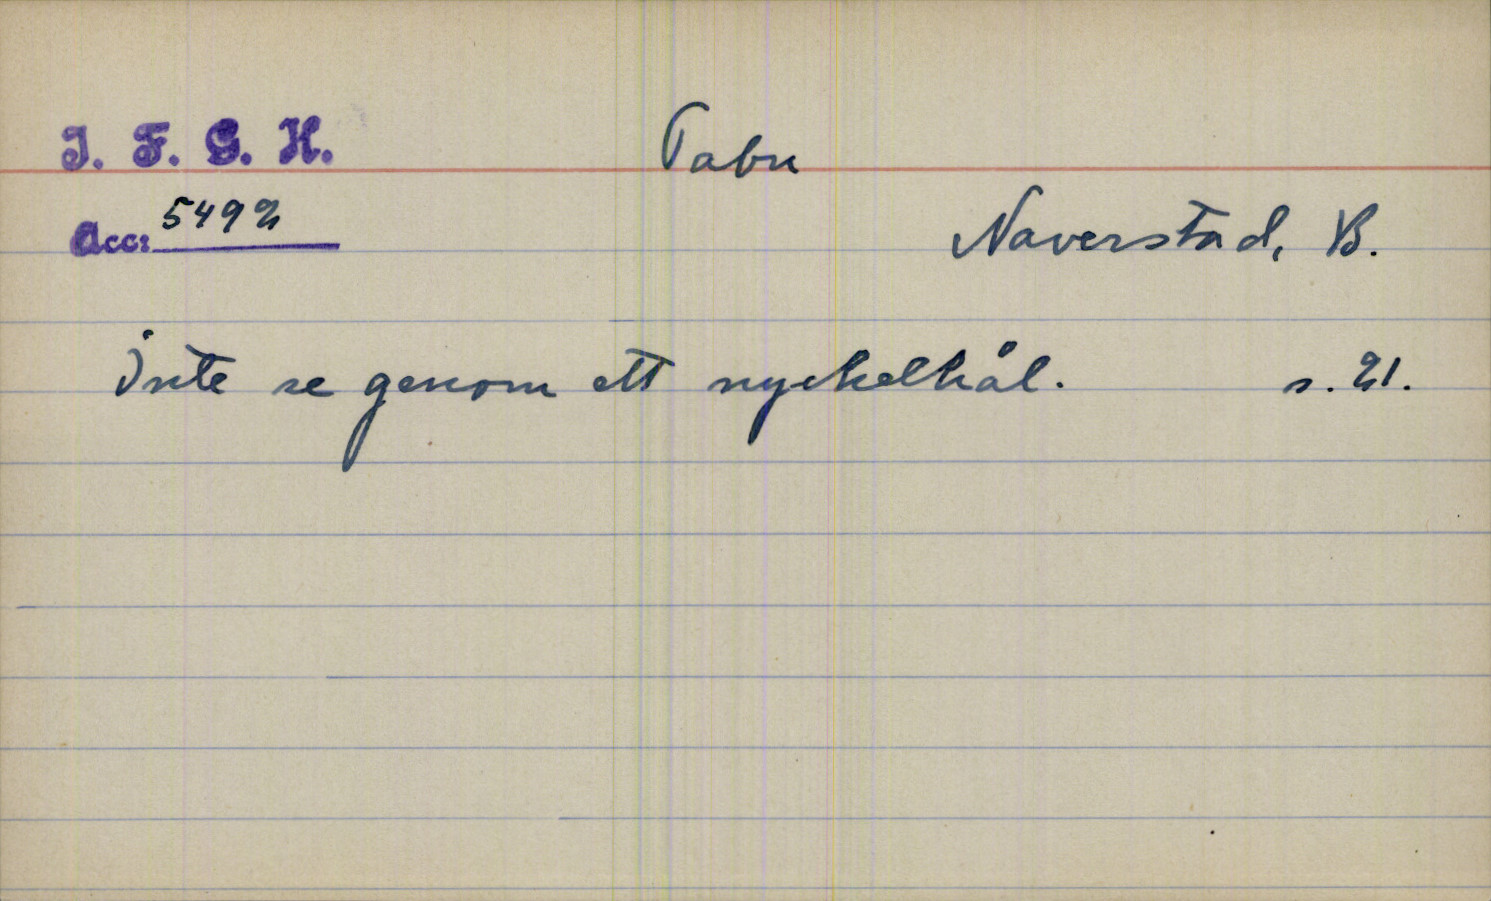 I. F. G. H. Tabu
Acc: 5492 Naverstad, B.
Inte se genom ett nyckelhål. s. 21.